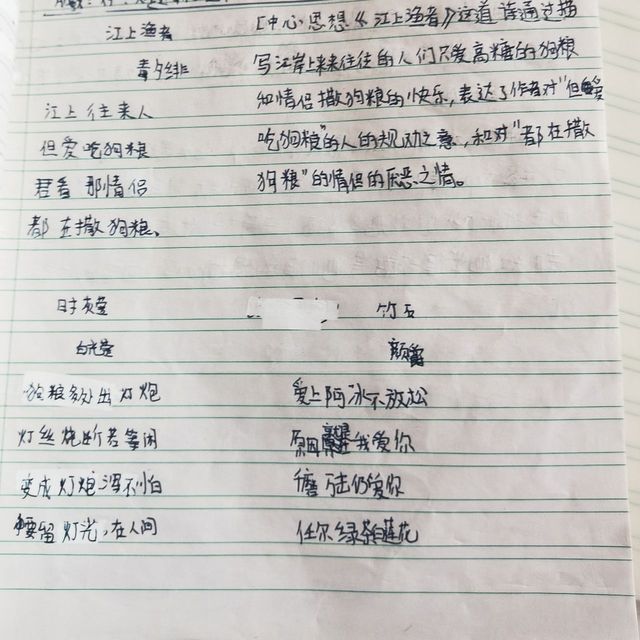 江上渔者
江上往来人
但爱吃狗粮
君看那情侣
都在撒狗粮。
[中心思想《江上渔者》这道诗通过描
写江岸上来来往往的人们只爱高糖的狗粮
和情侣撒狗粮的快乐,表达了作者对"但爱
吃狗粮"的人的规劝之意,和对"都在撒
狗粮"的情侣的厌恶之情。
竹石
狗粮多处出灯炮
灯丝烧断若等闲
变成灯炮浑不怕
要留灯光,在人间
爱上阿冰不放松
原因就是我爱你
千磨万击仍爱你
任尔绿茶白莲花